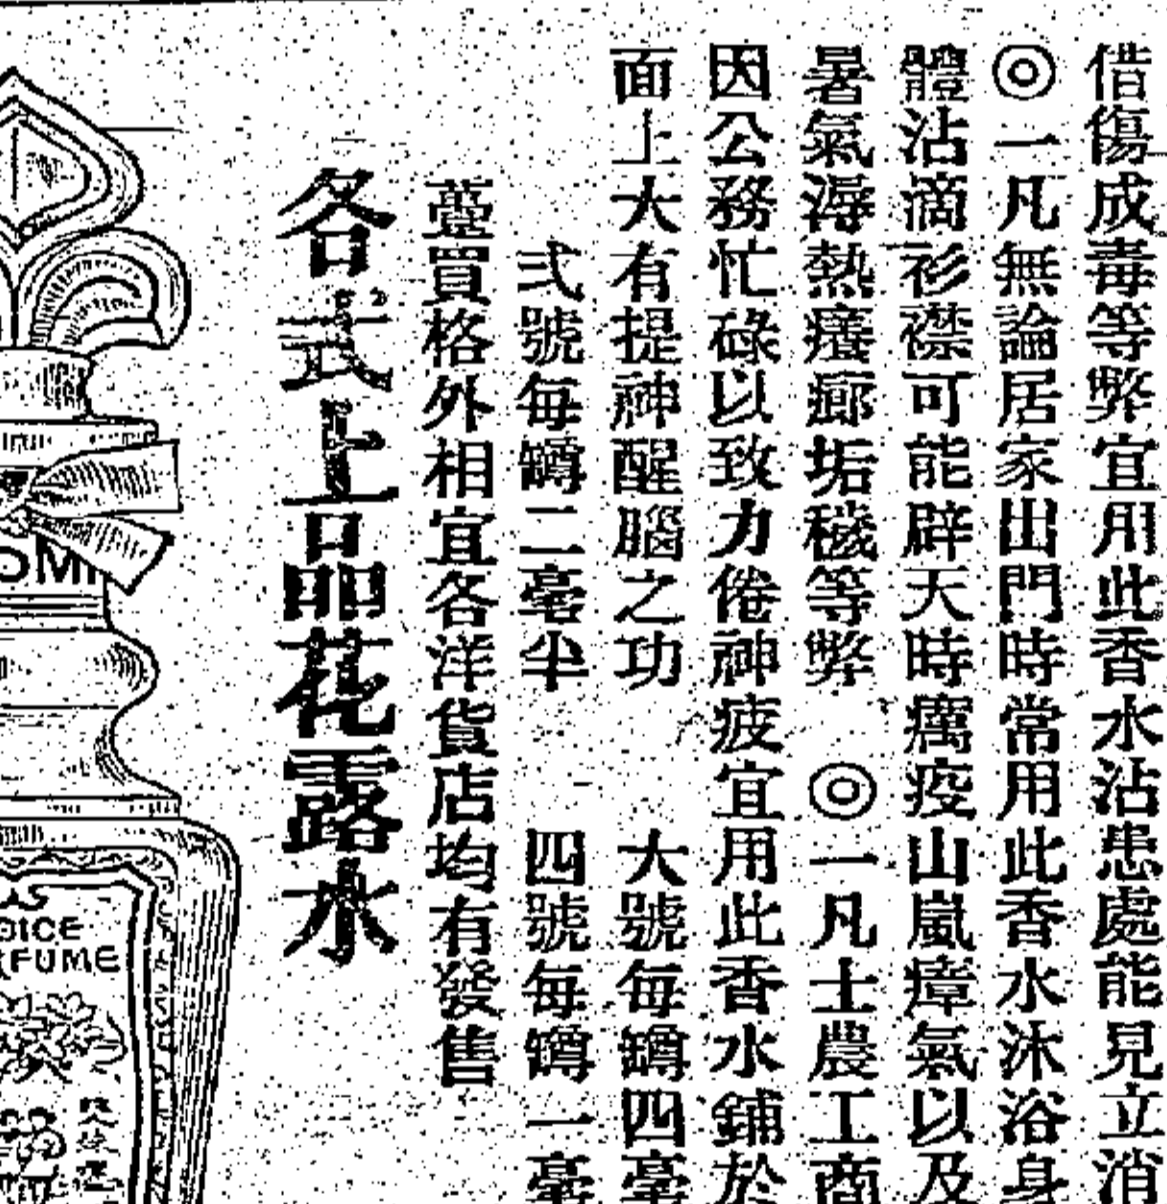 借傷成毒等弊宜用此香水沾患處能見立消
◎一凡無論居家出門時常用此香水沐浴身
體沾滴衫襟可能辟天時癘疫山嵐瘴氣以及
暑氣溽熱癢癤垢穢等弊　◎一凡士農工商
因公務忙碌以致力倦神疲宜用此香水鋪於
面上大有提神醒腦之功　大號每罇四毫
弍號每罇二毫半　四號每罇一毫
躉買格外相宜各洋貨店均有發售
各式上品花露水
OICE
FUME